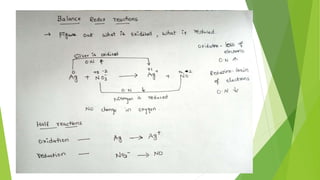 Balance Redox reactions
→ Figure out what is oxidized, what is reduced.
Oxidation - loss of electrons
O.N ↑
Silver is oxidized
O.N ↑
0 +5 -2 +1 +2 -2
Ag + NO3⁻ → Ag⁺ + NO
O.N ↓
Nitrogen is reduced
Reduction - Gain of electrons
O.N ↓
NO change in oxygen.
Half reactions
Oxidation — Ag → Ag⁺
reduction — NO3⁻ → NO